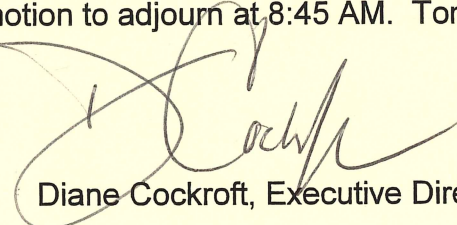 motion to adjourn at 8:45 AM. Tor
D Cockroft
Diane Cockroft, Executive Dire